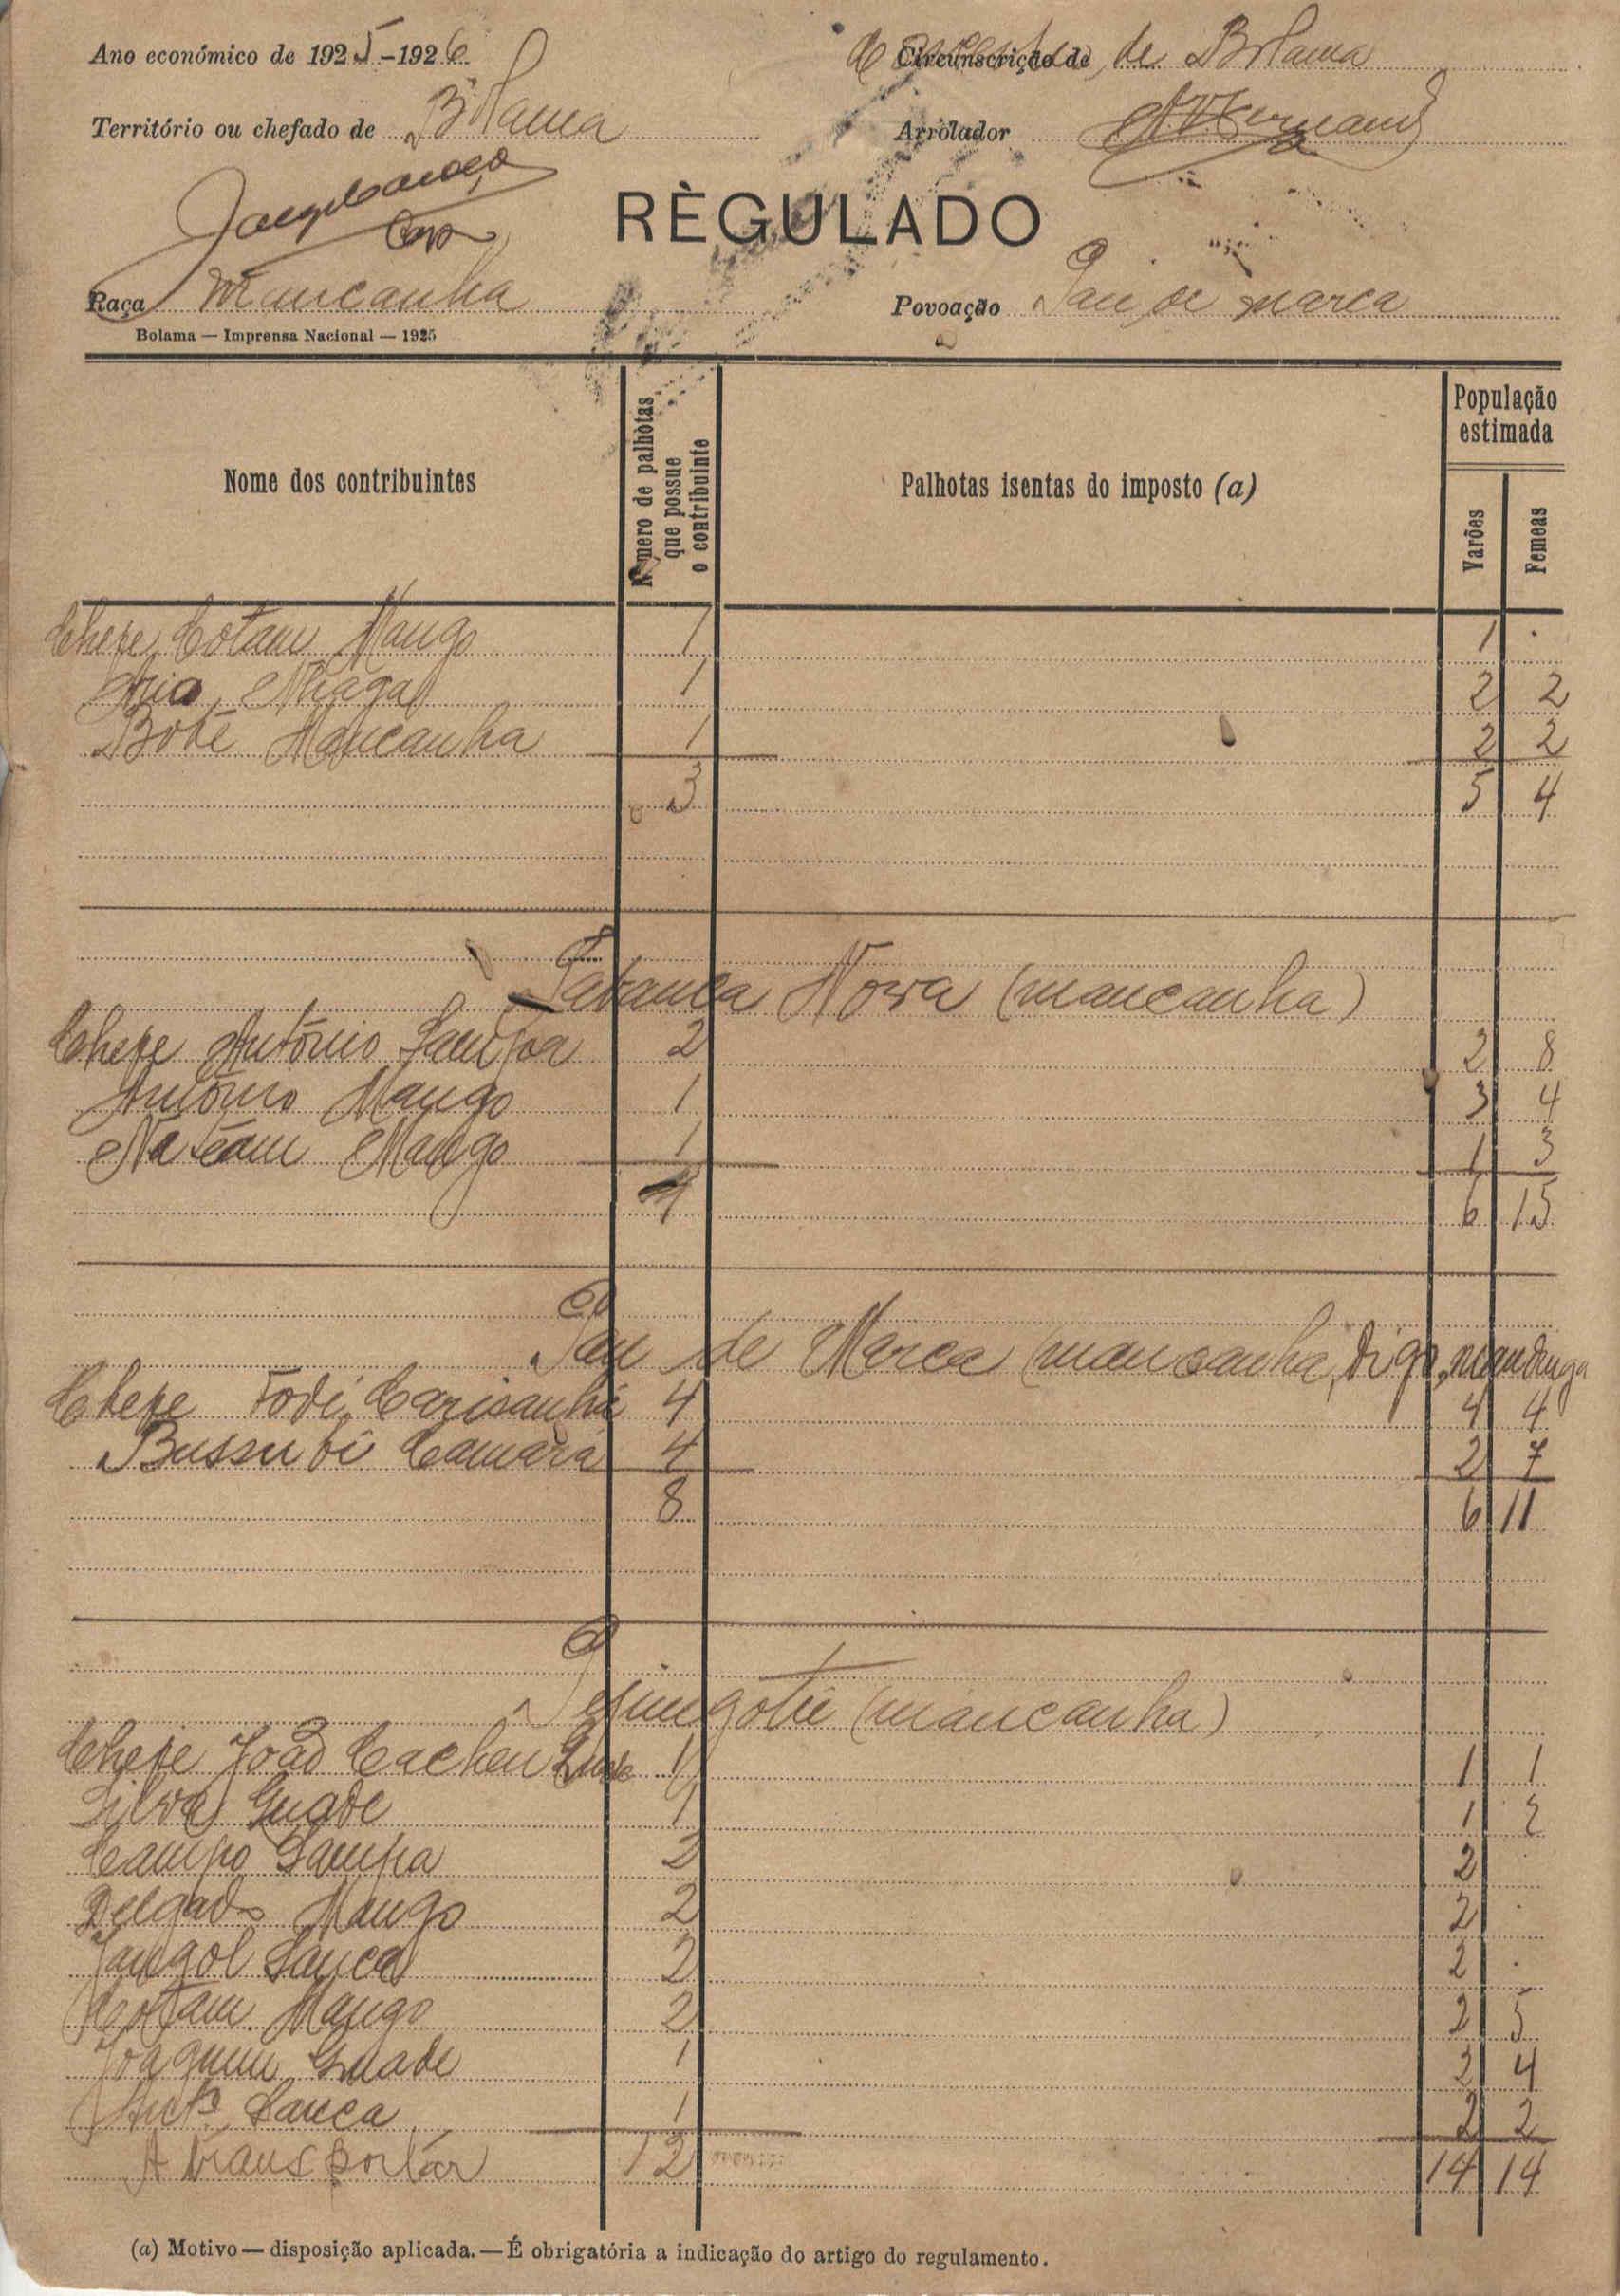 Ano económico de 1925-1926
Circunscrição de Concelho de Bolama
Território ou chefado de Bolama
Arrolador
RÈGULADO
Raça Mancanha
Povoação Pau de marca
Bolama — Imprensa Nacional — 1925
Nome dos contribuintes
Número de palhòtas que possue o contribuinte
Palhotas isentas do imposto (a)
População estimada
Varões Femeas
Chefe Cotam Mango 1 1 .
1 2 2
Boté Mancanha 1 2 2
3 5 4
Tabanca Nova (mancanha)
Chefe António Sampa 2 2 8
António Mango 1 3 4
Mango 1 1 3
4 6 15
Pau de Marca (mancanha, digo, mandinga
Chefe Fodi 4 4 4
Camará 4 2 7
8 6 11
(mancanha)
Chefe João Cacheu 1 1 1
Silva Guade 1 1 2
Campo Sampa 2 2
Delgado Mango 2 2 .
Jangol Sanca 2 2 .
Cotam Mango 2 2 5
Joaquim Guade 1 2 4
Antº Sanca 1 2 2
A transportar 12 14 14
(a) Motivo — disposição aplicada. — É obrigatória a indicação do artigo do regulamento.